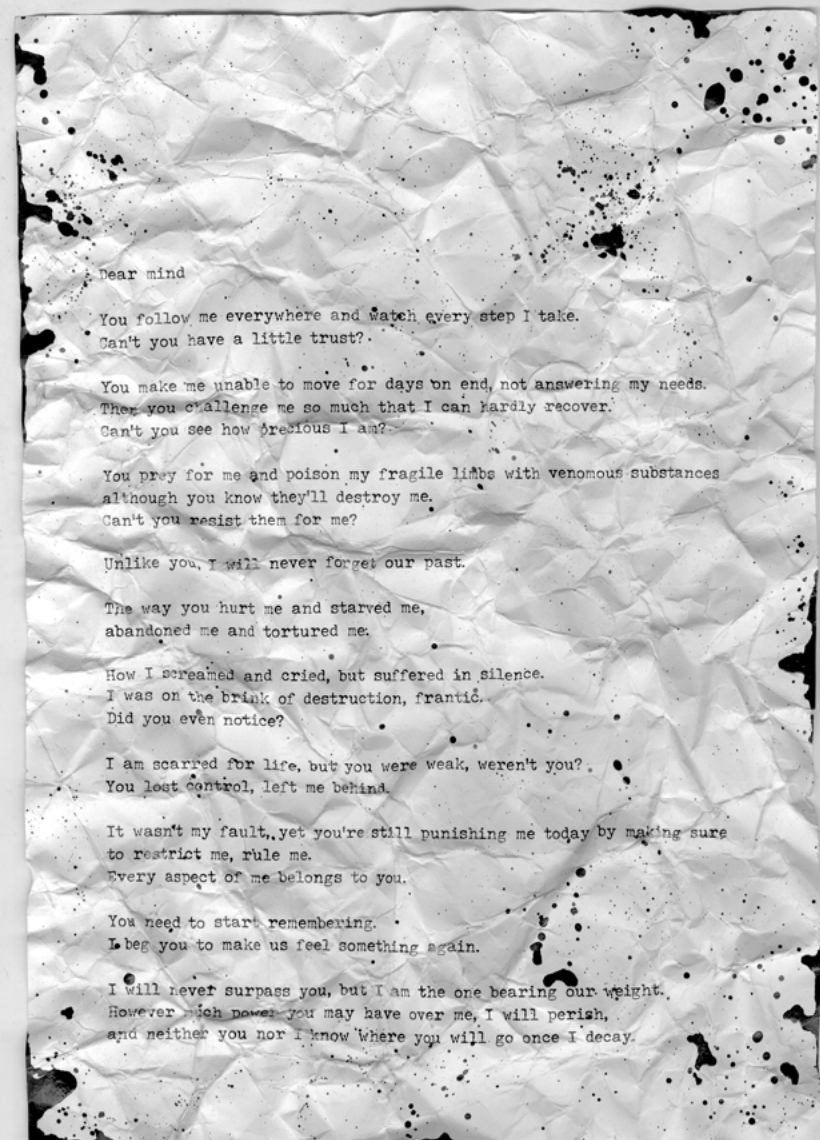 Dear mind
You follow me everywhere and watch every step I take.
Can't you have a little trust?
You make me unable to move for days on end, not answering my needs.
Then you challenge me so much that I can hardly recover.
Can't you see how precious I am?
You prey for me and poison my fragile limbs with venomous substances
although you know they'll destroy me.
Can't you resist them for me?
Unlike you, I will never forget our past.
The way you hurt me and starved me,
abandoned me and tortured me.
How I screamed and cried, but suffered in silence.
I was on the brink of destruction, frantic.
Did you even notice?
I am scarred for life, but you were weak, weren't you?
You lost control, left me behind.
It wasn't my fault, yet you're still punishing me today by making sure
to restrict me, rule me.
Every aspect of me belongs to you.
You need to start remembering.
I beg you to make us feel something again.
I will never surpass you, but I am the one bearing our weight.
However much power you may have over me, I will perish,
and neither you nor I know where you will go once I decay.